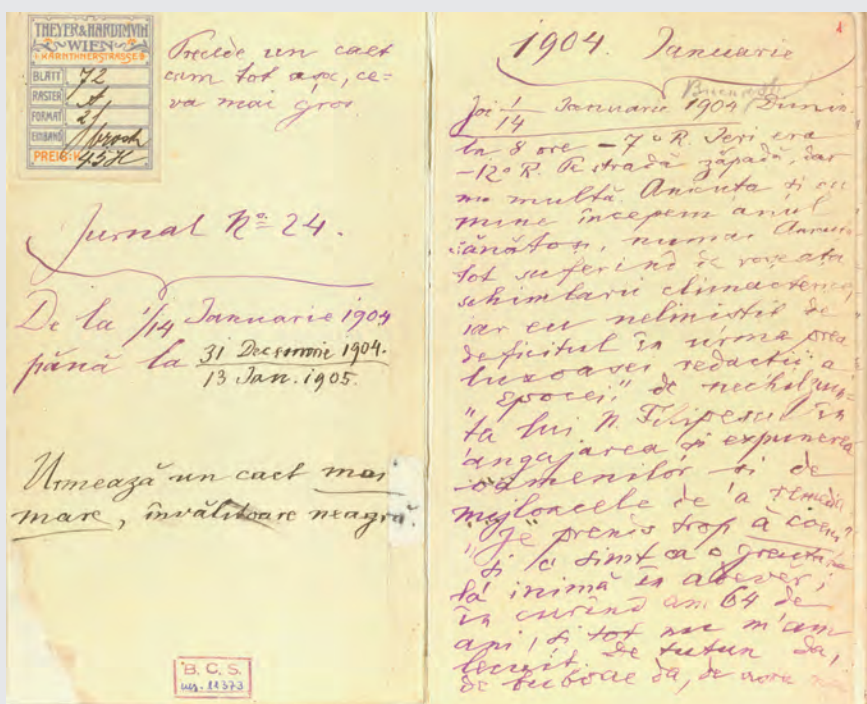 THEYER & HARDTMUTH
WIEN
KÄRNTHNERSTRASSE 9
BLATT 72
RASTER A
FORMAT 21
EINBAND brosch
PREIS: K 45 H
Precede un caet
cam tot așa, ce=
va mai gros
Jurnal No 24.
De la 1/14 Ianuarie 1904
până la 31 Decemvrie 1904.
13 Ian. 1905.
Urmează un caet mai
mare, învălitoare neagră.
B. C. S.
inv. 11373
1
1904. Ianuarie
București
Joi 1/14 Ianuarie 1904
la 8 ore -7° R. Ieri era
-12° R. Pe stradă zăpadă, dar
nu multă. Ancuta și cu
mine începem anul
sănătoși, numai Ancuta
tot suferind de
schimbării climacterice,
iar eu neliniștit de
deficitul în urma prea
luxoasei redacții a
"Epocei" de nechibzuin=
ța lui N. Filipescu în
angajarea și expunerea
oamenilor și de
mijloacele de a remedia
"Je prenis trop à coeur"
și o simt ca o greutate
la inimă în adevăr;
în curînd am 64 de
ani, și tot nu m'am
lecuit. De tutun da,
de da, de